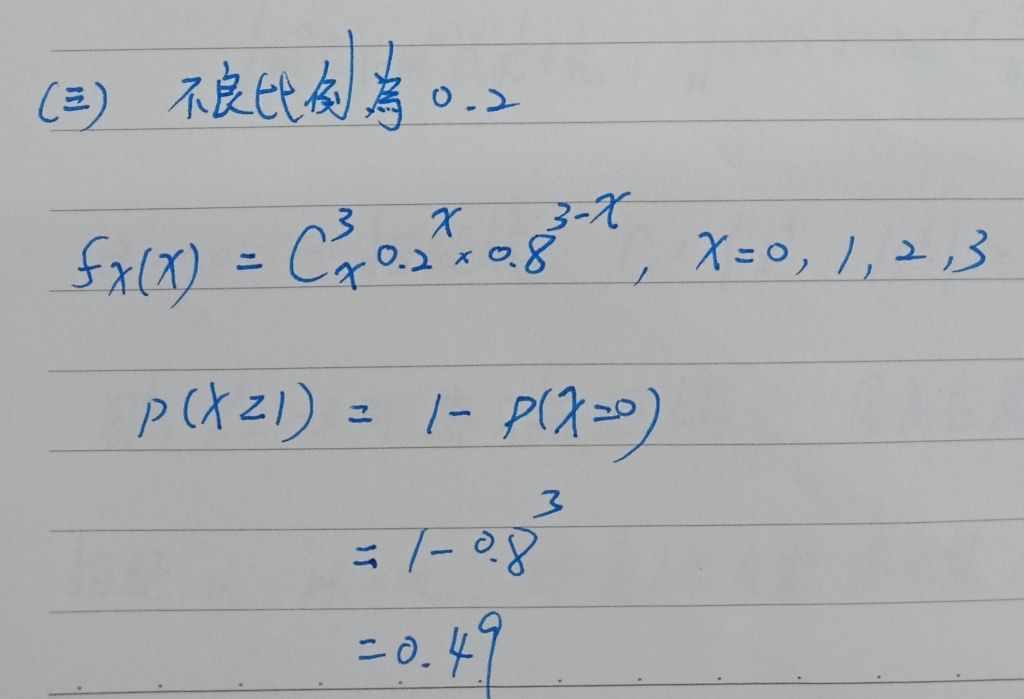 (三) 不良比例為 0.2
fₓ(x) = C³ₓ 0.2ˣ × 0.8³⁻ˣ , x=0, 1, 2, 3
P(X≥1) = 1- P(X=0)
= 1-0.8³
=0.49